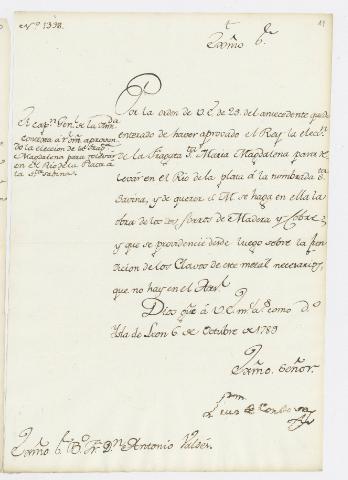 N.º 1398.
11
Exmo. Sr.
El Capn. Genl. de la Armda.
contexta á rl. orn. aprovan-
do la eleccion de la Fragta.
Magdalena para relevar
en el Rio de la Plata á
la Sta. Sabina.
Por la orden de V.E. de 29. del antecedente quedo
enterado de haver aprovado el Rey la elecn.
de la Fragata Sta. Maria Magdalena para re-
levar en el Rio de la plata á la nombrada Sta.
Savina, y de querer S.M. se haga en ella la
obra de los dos forros de Madera y Cobre;
y que se providencie desde luego sobre la
de los Clavos de este metal necesarios,
que no hay en el Arsl.
Dios gue. á V.E. ms. as. como do.
Ysla de Leon 6 de Octubre de 1789
Exmo. Señor.
Luis de Cordova
Exmo. Sr. Bo. Fr. Dn. Antonio Valdés.